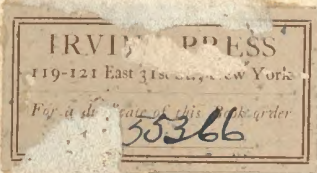 IRVIN PRESS
119-121 East 31st St., New York
For a duplicate of this Book order
55366